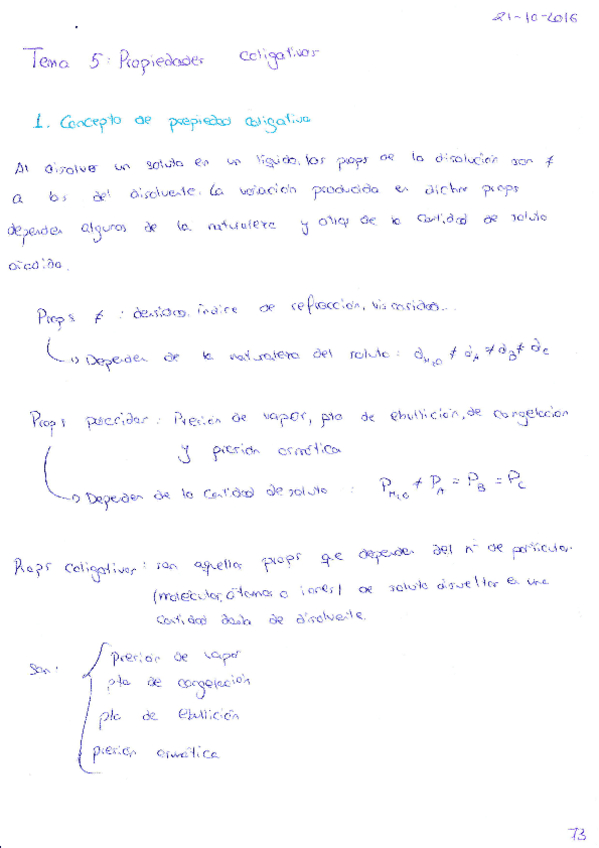 21-10-2016
Tema 5: Propiedades coligativas
1. Concepto de propiedad coligativa
Al disolver un soluto en un líquido, las props de la disolución son ≠
a las del disolvente. La variación producida en dichas props
dependen algunas de la naturaleza y otras de la cantidad de soluto
añadida.
Props ≠ : densidad, índice de refracción, viscosidad...
↳ Dependen de la naturaleza del soluto : d_H₂O ≠ d_A ≠ d_B ≠ d_C
Props parecidas : Presión de vapor, pto de ebullición, de congelación
y presión osmótica
↳ Dependen de la cantidad de soluto : P_H₂O ≠ P_A = P_B = P_C
Props coligativas : son aquellas props que dependen del nº de partículas
(moléculas, átomos o iones) de soluto disueltas en una
cantidad dada de disolvente.
Son: presión de vapor
pto de congelación
pto de ebullición
presión osmótica
73